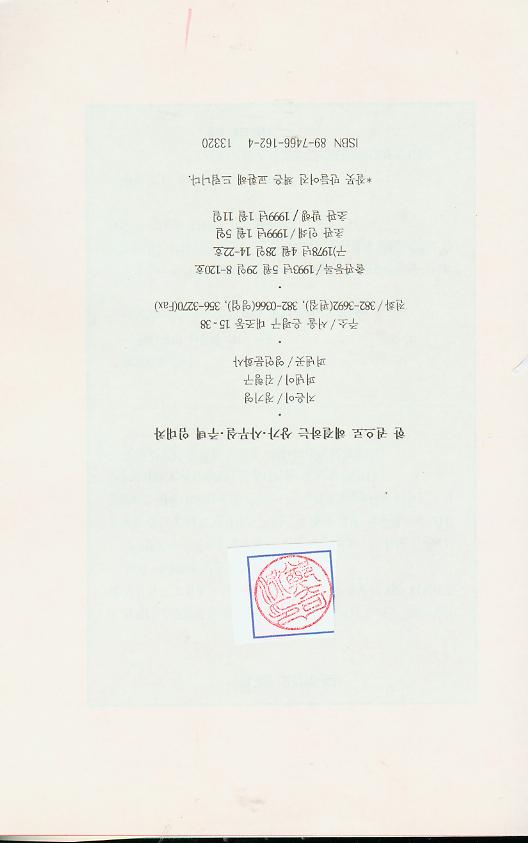 한 권으로 해결하는 상가·사무실·주택 임대차
•
지은이 / 정기영
펴낸이 / 김형구
펴낸곳 / 영언문화사
•
주소 / 서울 은평구 대조동 15-38
전화 / 382-3692(편집), 382-0366(영업), 356-3270(Fax)
•
출판등록 / 1993년 5월 29일 8-120호
구)1978년 4월 28일 14-22호
초판 인쇄 / 1999년 1월 5일
초판 발행 / 1999년 1월 11일
*잘못 만들어진 책은 교환해 드립니다.
ISBN 89-7466-162-4 13320